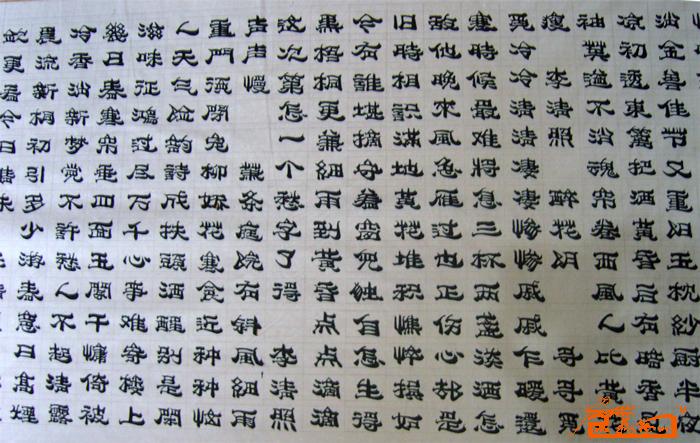 消金兽佳节又重阳玉枕纱厨半夜
凉初透東篱把酒黄昏后有暗香盈
袖莫道不消魂帘卷西風人比黄花
瘦李清照醉花阴尋尋覓
覓冷冷清清凄凄惨惨戚戚乍暖還
寒時候最难将息三杯两盏淡酒怎
敌他晚来風急雁过也正伤心却是
旧時相識满地黄花堆积憔悴損如
今有誰堪摘守着窗兒独自怎生得
黑梧桐更兼細雨到黄昏点点滴滴
这次第怎一个愁字了得李清照
声声慢萧条庭院有斜風細雨
重門須閉寵柳娇花寒食近种种恼
人天气险韵詩成扶頭酒醒別是閑
滋味征鴻过尽万千心事难寄楼上
幾日春寒帘垂四面玉闌干慵倚被
冷香消新梦覺不許愁人不起清露
晨流新桐初引多少游春意日高煙
斂更看今日晴未